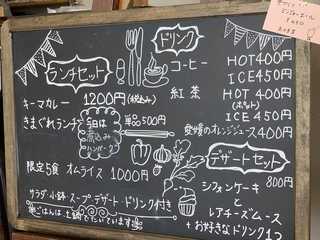 ランチセット
キーマカレー 1200円(税込み)
きまぐれランチ 単品500円
今日は
煮込み
ハンバーグ
限定5食 オムライス 1000円
サラダ・小鉢 スープ デザート・ドリンク付き
ごはんは土鍋でたいています
ドリンク
コーヒー HOT 400円
ICE 450円
紅茶 HOT 400円
(ポット)
ICE 450円
愛媛のオレンジジュース 400円
デザートセット
800円
シフォンケーキ
と
レアチーズムース
+お好きなドリンク